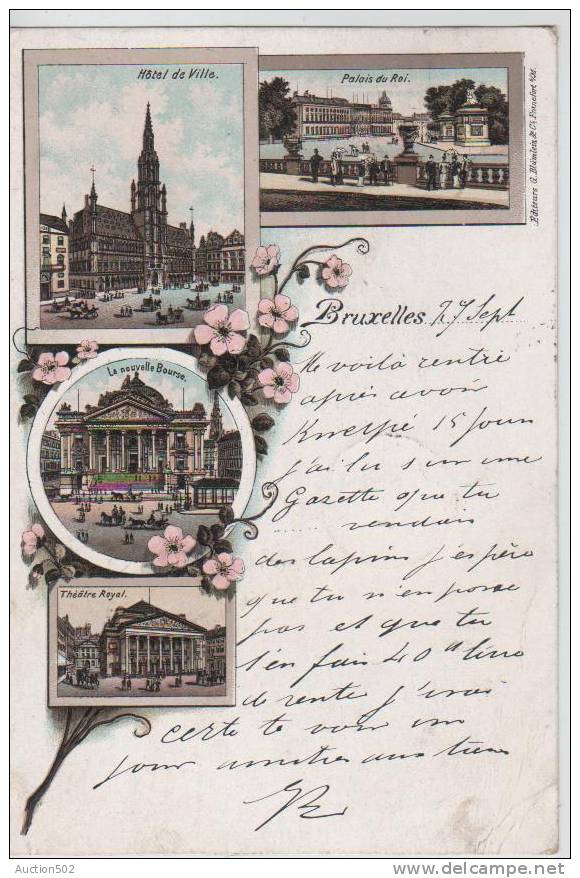 Hôtel de Ville.
Palais du Roi.
Editeurs G. Blümlein & Co. Francfort s/M.
Bruxelles 27 Sept
Me voilà rentré
après avoir
Kneippé 15 jours
j'ai lu sur une
La nouvelle Bourse.
Gazette que tu
vendais
des lapins j'espère
que tu n'en pose
pas et que tu
Théâtre Royal.
t'en fais 40 livre
de rente j'irai
certe te voir un
jour amitiés aux tiens
Auction502
delcampe.net